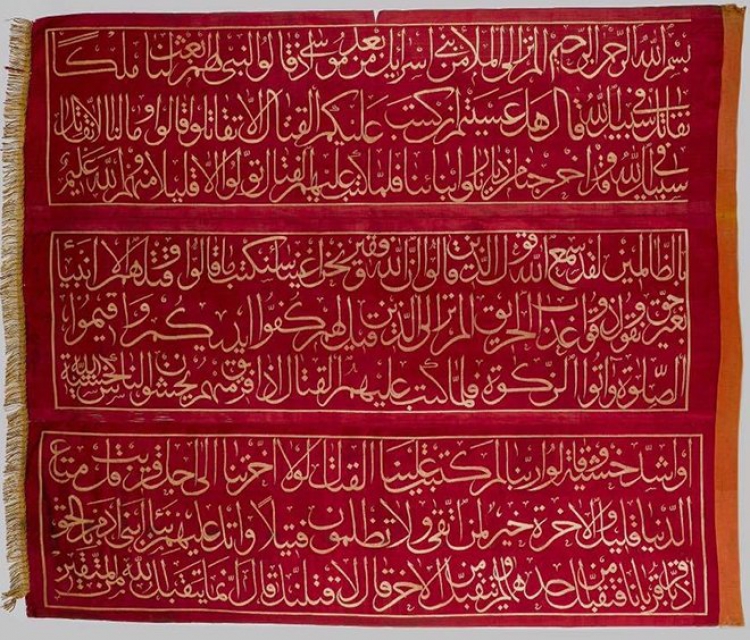 بسم الله الرحمن الرحيم الم تر الى الملا من بني اسرايل من بعد موسى اذ قالوا لنبي لهم ابعث لنا ملكا
نقاتل في سبيل الله قال هل عسيتم ان كتب عليكم القتال الا تقاتلوا قالوا وما لنا الا نقاتل
في سبيل الله وقد اخرجنا من ديارنا وابنائنا فلما كتب عليهم القتال تولوا الا قليلا منهم والله عليم
بالظالمين لقد سمع الله قول الذين قالوا ان الله فقير ونحن اغنيا سنكتب ما قالوا وقتلهم الانبيا
بغير حق ونقول ذوقوا عذاب الحريق الم تر الى الذين قيل لهم كفوا ايديكم واقيموا
الصلوة واتوا الزكوة فلما كتب عليهم القتال اذا فريق منهم يخشون الناس كخشية الله
او اشد خشية وقالوا ربنا لم كتبت علينا القتال لولا اخرتنا الى اجل قريب قل متاع
الدنيا قليل والاخرة خير لمن اتقى ولا تظلمون فتيلا واتل عليهم نبا ابني ادم بالحق
اذ قربا قربانا فتقبل من احدهما ولم يتقبل من الاخر قال لاقتلنك قال انما يتقبل الله من المتقين